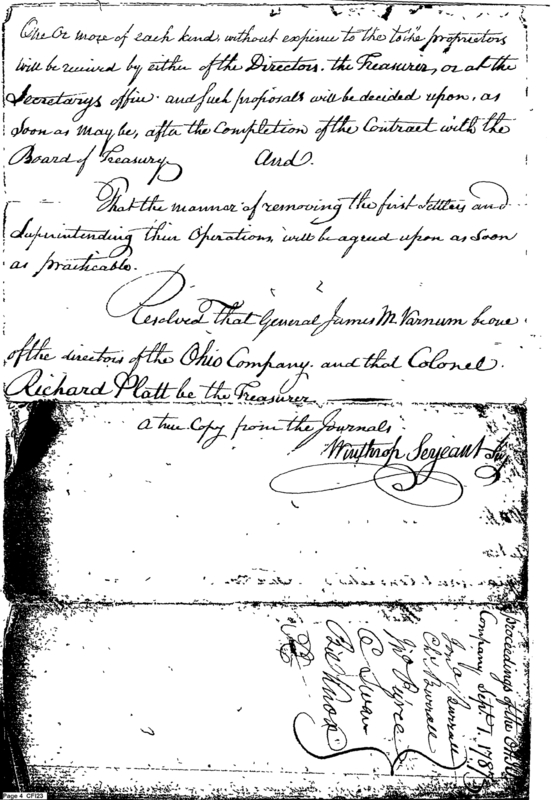 One or more of each kind, without expence to the proprietors
will be received by either of the Directors, the Treasurer, or at the
Secretarys office and such proposals will be decided upon, as
soon as may be, after the Completion of the Contract with the
Board of Treasury And.
That the manner of removing the first settlers and
Superintending their Operations, will be agreed upon as soon
as practicable.
Resolved That General James M Varnum be one
of the directors of the Ohio Company. and that Colonel
Richard Platt be the Treasurer
a true Copy from the Journals
Winthrop Sergeant
proceedings of the Ohio
Company Sept. 1. 1787
Burrall
Burrall
Pierce
Swan
Knox
Page 4 CFI23